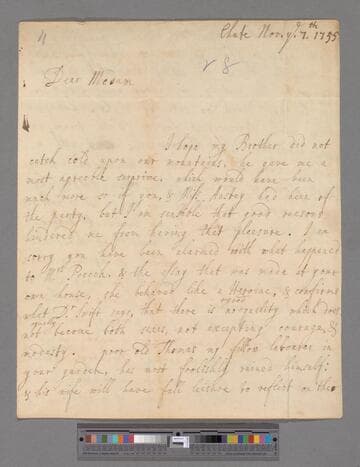 4
Chute Nov. ye 7.th 1755
Dear Madam
I hope my Brother did not
catch cold upon our mountains, he gave me a
most agreeable surprise, which would have been
much more so if you, & Miss Anstey had been of
the party, but I am sensible that good reasons
hindered me from having that pleasure. I am
sorry you have been alarmed with what happened
to Mrs & the that was made at your
own house, she behaved like a Heroine, & confirms
what Dr. Swift says, that there is no quality which does
good
not become both sexes, not excepting courage, &
modesty. poor old Thomas my fellow labourer in
your garden, has most foolishly ruined himself:
& his wife will have full leisure to reflect on the